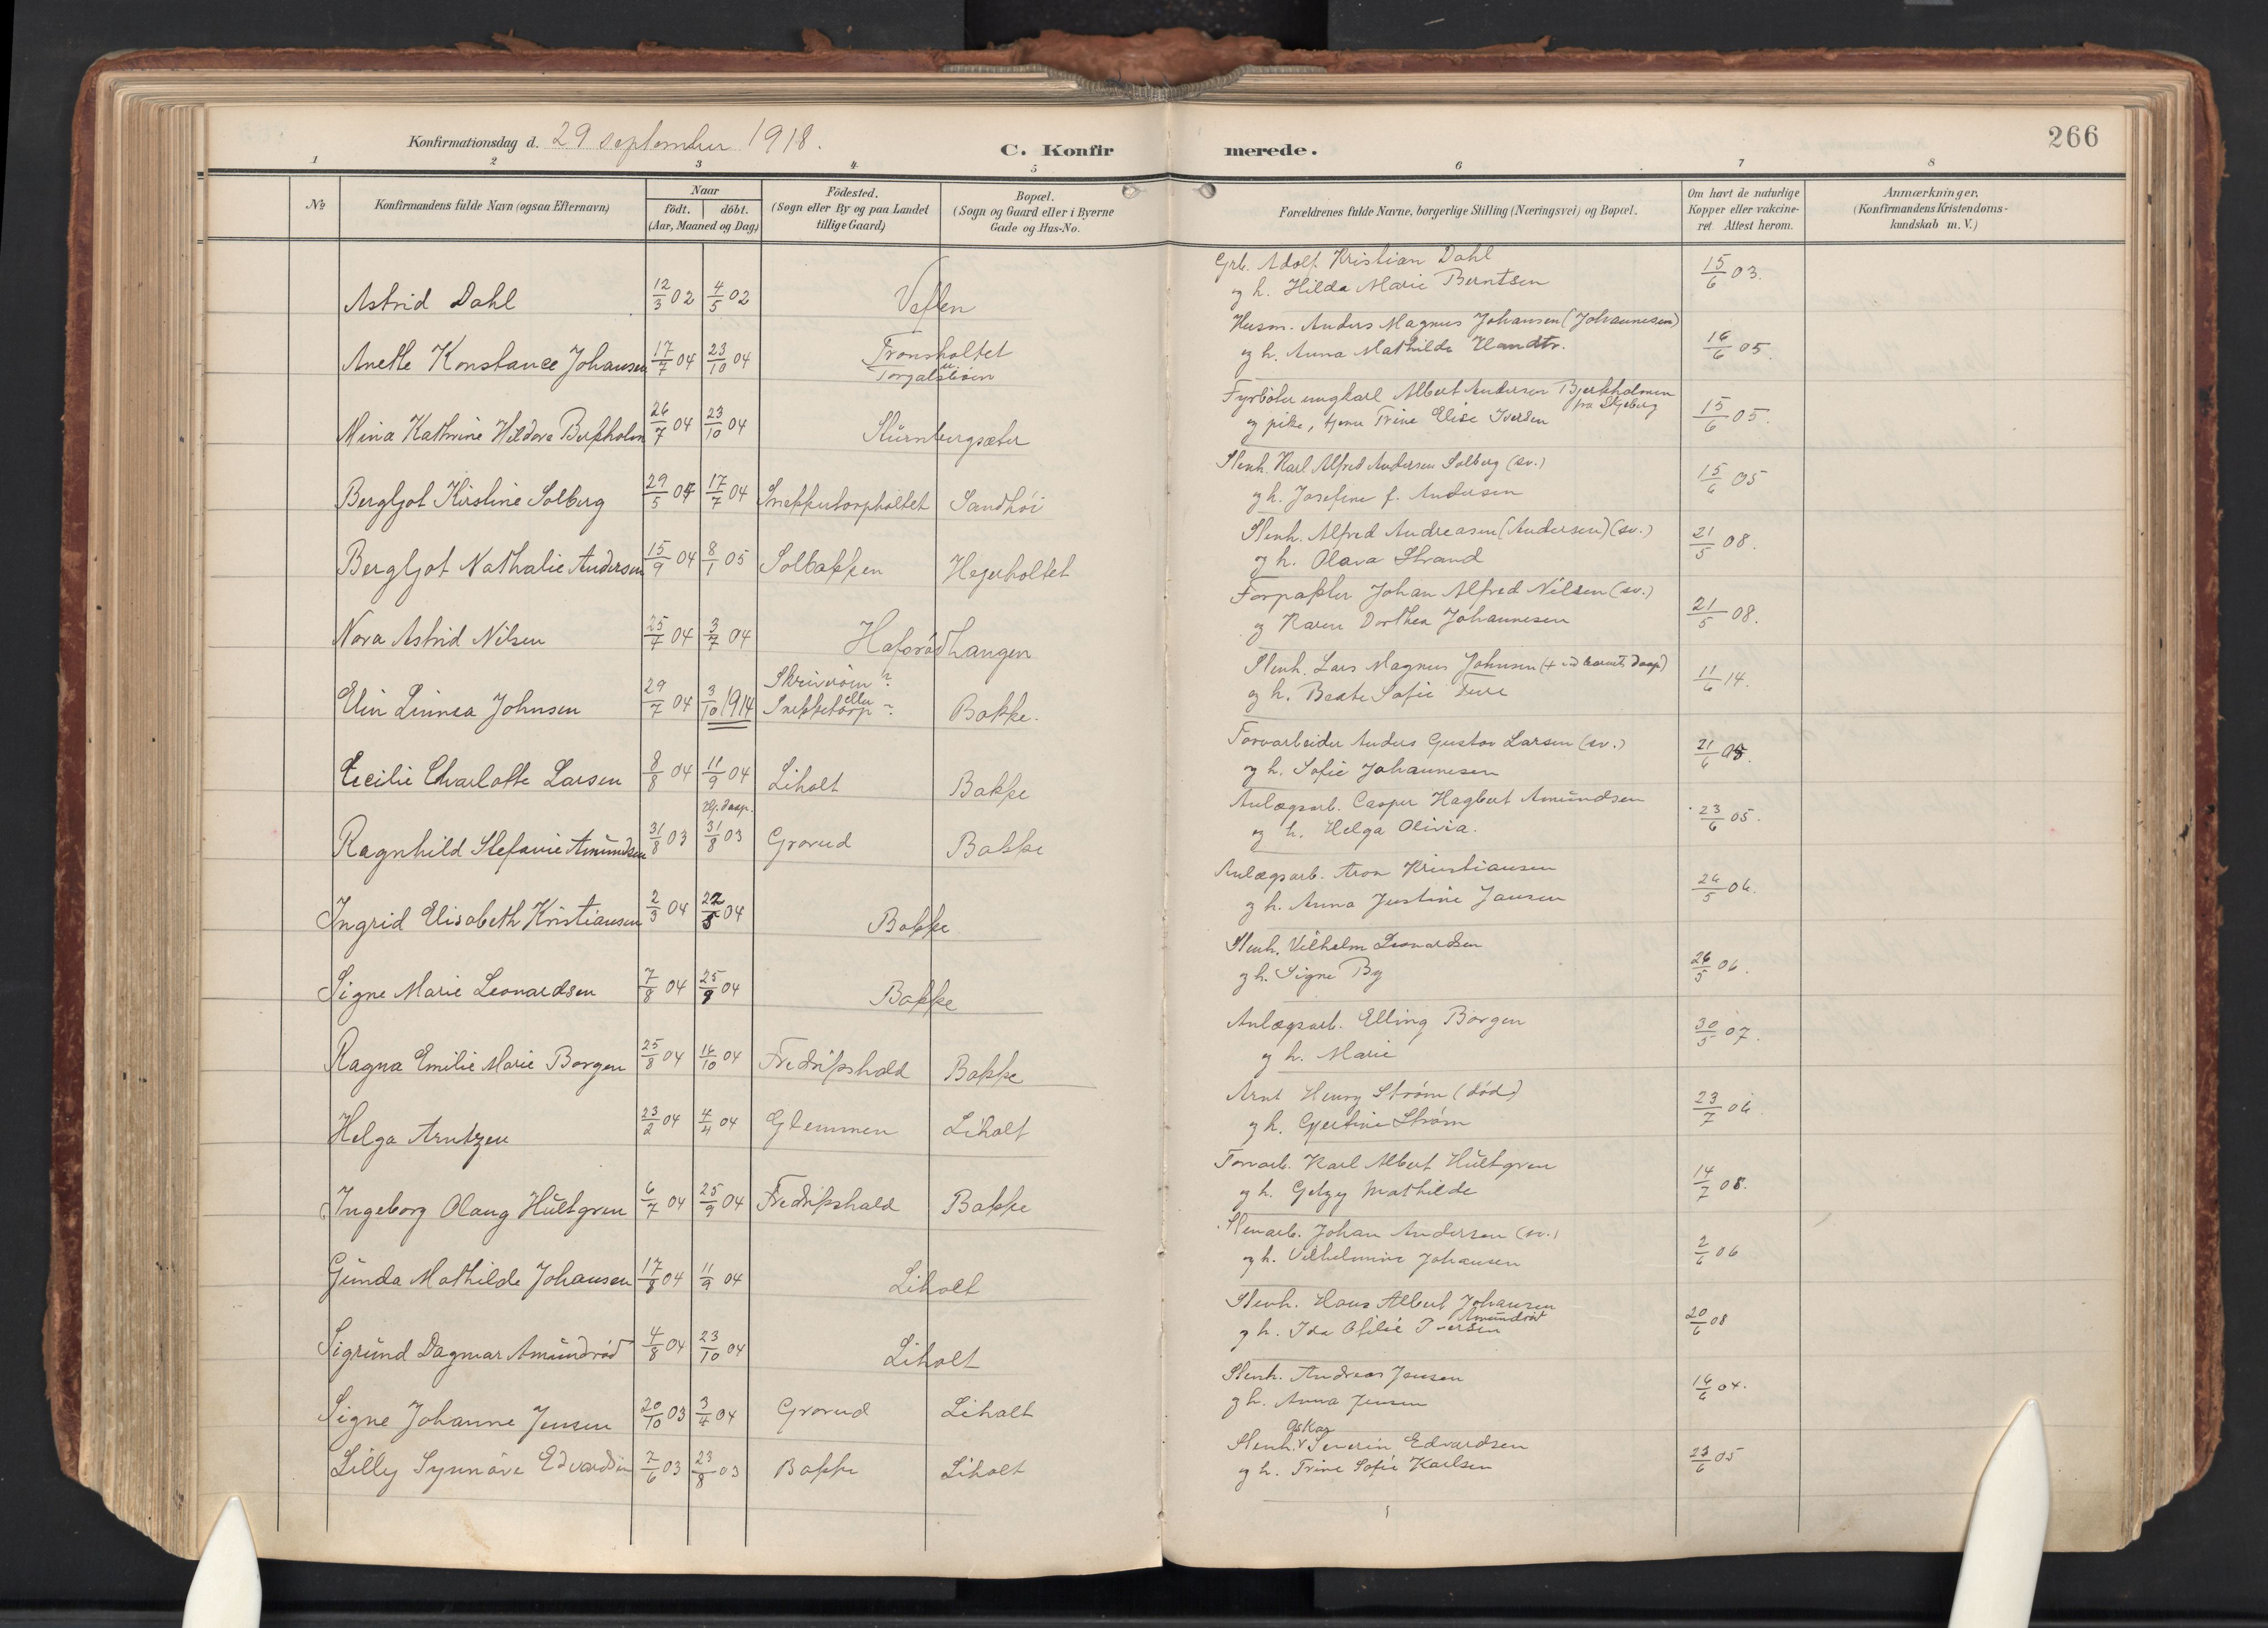 266
Konfirmationsdag d. 29 september 1918.
C. Konfirmerede.
1 2 3 4 5 6 7 8
No
Konfirmandens fulde Navn (ogsaa Efternavn)
Naar
født. døbt.
(Aar, Maaned og Dag)
Fødested.
(Sogn eller By og paa Landet
tillige Gaard)
Bopæl.
(Sogn og Gaard eller i Byerne
Gade og Hus-No.
Forældrenes fulde Navne, borgerlige Stilling (Næringsvei) og Bopæl.
Om havt de naturlige
Kopper eller vakcine-
ret. Attest herom.
Anmærkninger.
(Konfirmandens Kristendoms-
kundskab m. V.)
Astrid Dahl 12/3 02 4/5 02 Veften
Grb. Adolf Kristian Dahl
og h. Hilda Marie Berntsen
15/6 03.
Anette Konstance Johansen 17/7 04 23/10 04 Tronsholtet
u. Torgalsbøen
Husm. Anders Magnus Johansen (Johannesen)
og h. Anna Mathilde
16/6 05.
Mina Kathrine Hildora 26/7 04 23/10 04
Fyrbøter ungkarl Albert Andersen Bjerkholmen
fra Skjeberg
og pike, tjener Trine Elise Iversen
15/6 05.
Bergljot Kirstine Solberg 29/5 04 17/7 04 Snekkertorpholtet Sandhøi
Stenh. Karl Alfred Andersen Solberg (sv.)
og h. Josefine f. Andersen
15/6 05
Bergljot Nathalie Andersen 15/9 04 8/1 05 Solbakken Hejerholtet
Stenh. Alfred Andreasen (Andersen) (sv.)
og h. Olava Strand
21/5 08.
Nora Astrid Nilsen 25/4 04 3/7 04 Hafsrød Langen
Forpakter Johan Alfred Nilsen (sv.)
og Karen Dorthea Johannesen
21/5 08.
Elin Linnea Johnsen 29/7 04 3/10 1914
eller Snekketorp ? Bakke.
Stenh. Lars Magnus Johnsen (+ ved barnets daap)
og h. Beate Sofie
11/6 14.
Cecilie Charlotte Larsen 8/8 04 11/9 04 Liholt Bakke
Torvarbeider Anders Gustav Larsen (sv.)
og h. Sofie Johannesen
21/6 05.
Ragnhild Stefanie Amundsen 31/8 03 daap. 31/8 03 Grorud Bakke
Anlægsarb. Casper Hagbert Amundsen
og h. Helga Olivia.
23/6 05.
Ingrid Elisabeth Kristiansen 2/3 04 22/5 04 Bakke
Anlægsarb. Aron Kristiansen
og h. Anna Justine Jansen
26/5 06.
Signe Marie Leonardsen 7/8 04 25/9 04 Bakke
Stenh. Vilhelm Leonardsen
og h. Signe By
26/5 06.
Ragna Emilie Marie Borgen 25/8 04 16/10 04 Fredrikshald Bakke
Anlægsarb. Elling Borgen
og h. Marie
30/5 07.
Helga Arntzen 23/2 04 4/4 04 Glemmen Liholt
Arnt Henry Strøm (død)
og h. Gjertine Strøm
23/7 06
Ingeborg Olaug Hultgren 6/7 04 25/9 04 Fredrikshald Bakke
Torvarb. Karl Albert Hultgren
og h. Getzy Mathilde
14/7 08.
Gunda Mathilde Johansen 17/8 04 11/9 04 Liholt
Stenarb. Johan Andersen (sv.)
og h. Vilhelmine Johansen
2/6 06
Sigrund Dagmar Amundrød 4/8 04 23/10 04 Liholt
Stenh. Hans Albert Johansen
Amundrød
og h. Ida Otilie Iversen
20/6 08
Signe Johanne Jensen 20/10 03 3/4 04 Grorud Liholt
Stenh. Andreas Jensen
og h. Anna Jensen
16/6 04.
Lilly Synnøve Edvardsen 7/6 03 23/8 03 Bakke Liholt
Oskar
Stenh. Severin Edvardsen
og h. Trine Sofie Karlsen
23/6 05